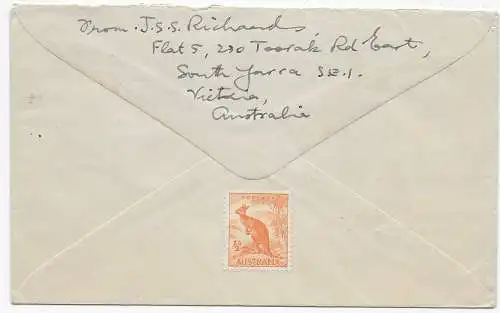 From. J.S.S. Richards,
Flat 5, 290 Toorak Rd East,
South Yarra S.E.1.
Victoria,
Australia
POSTAGE
½D
AUSTRALIA